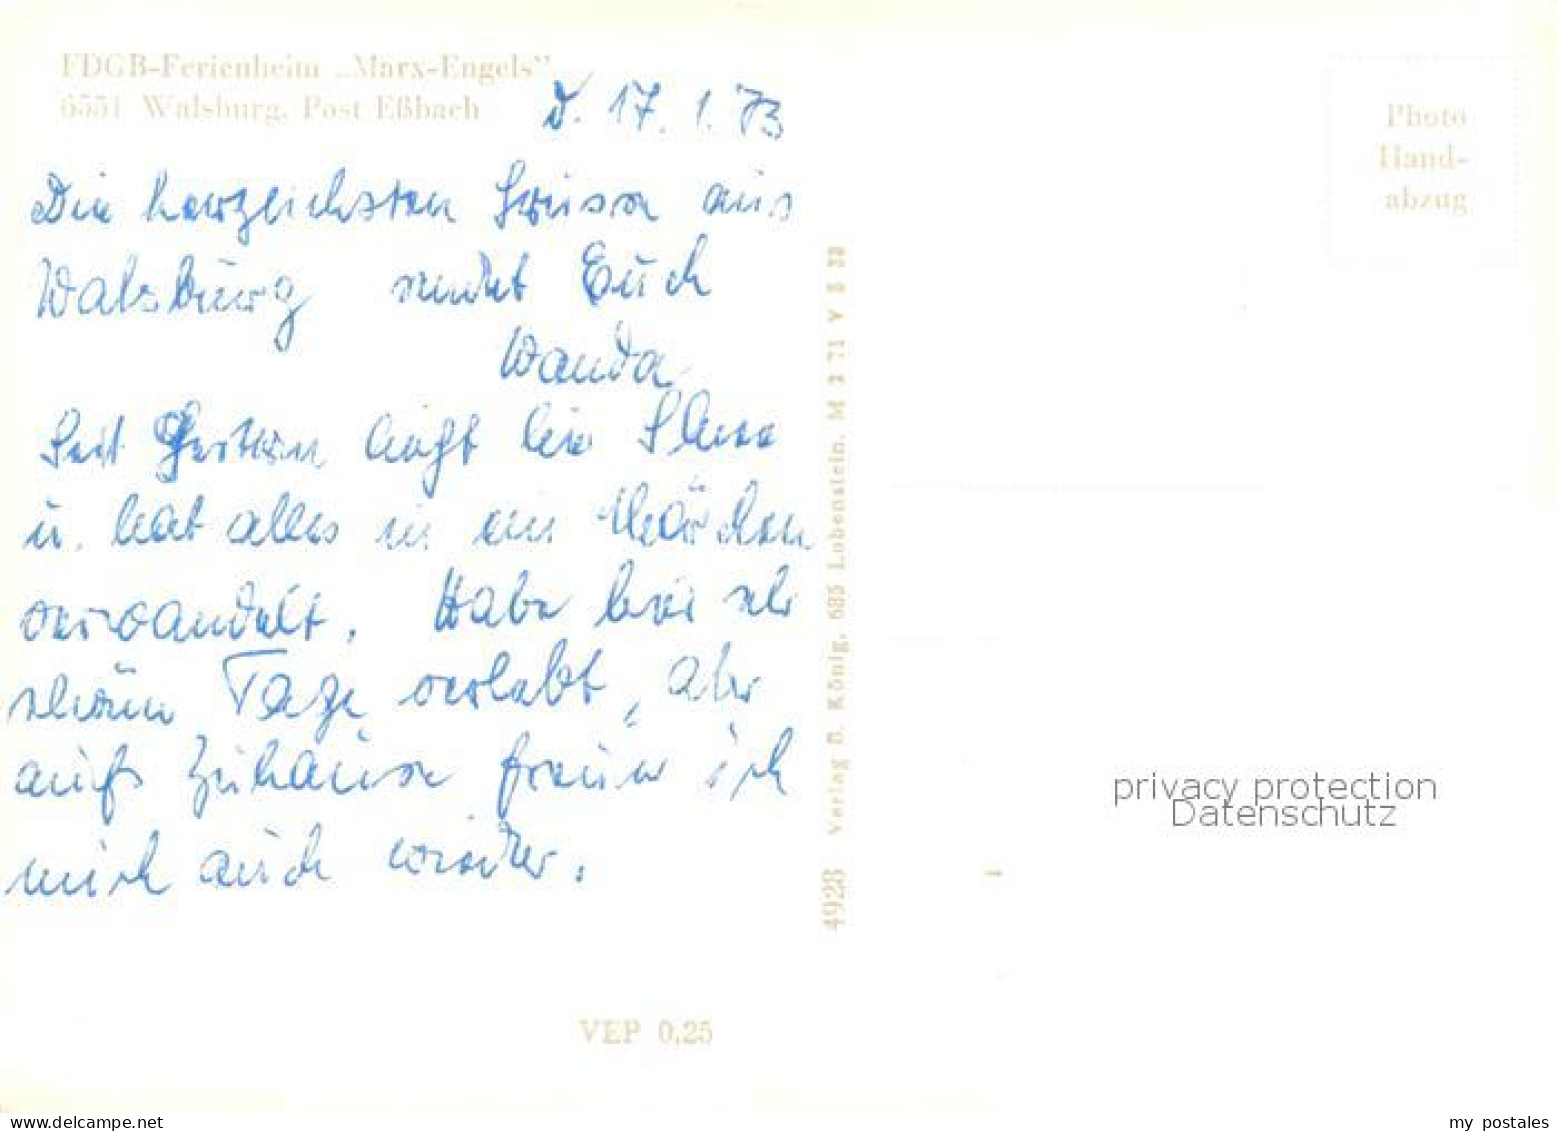 FDGB-Ferienheim „Marx-Engels"
6551 Walsburg, Post Eßbach
d. 17. 1. 73
Die herzlichsten Grüsse aus
Walsburg sendet Euch
Wanda
Seit Gestern liegt hier Schnee
u. hat alles in ein Märchen
verwandelt. Habe hier sehr
schöne Tage verlebt, aber
aufs Zuhause freue ich
mich auch wieder.
VEP 0,25
4928 Verlag D. König, 685 Lobenstein. M 2 71 V 5 22
Photo
Hand-
abzug
privacy protection
Datenschutz
www.delcampe.net
my_postales